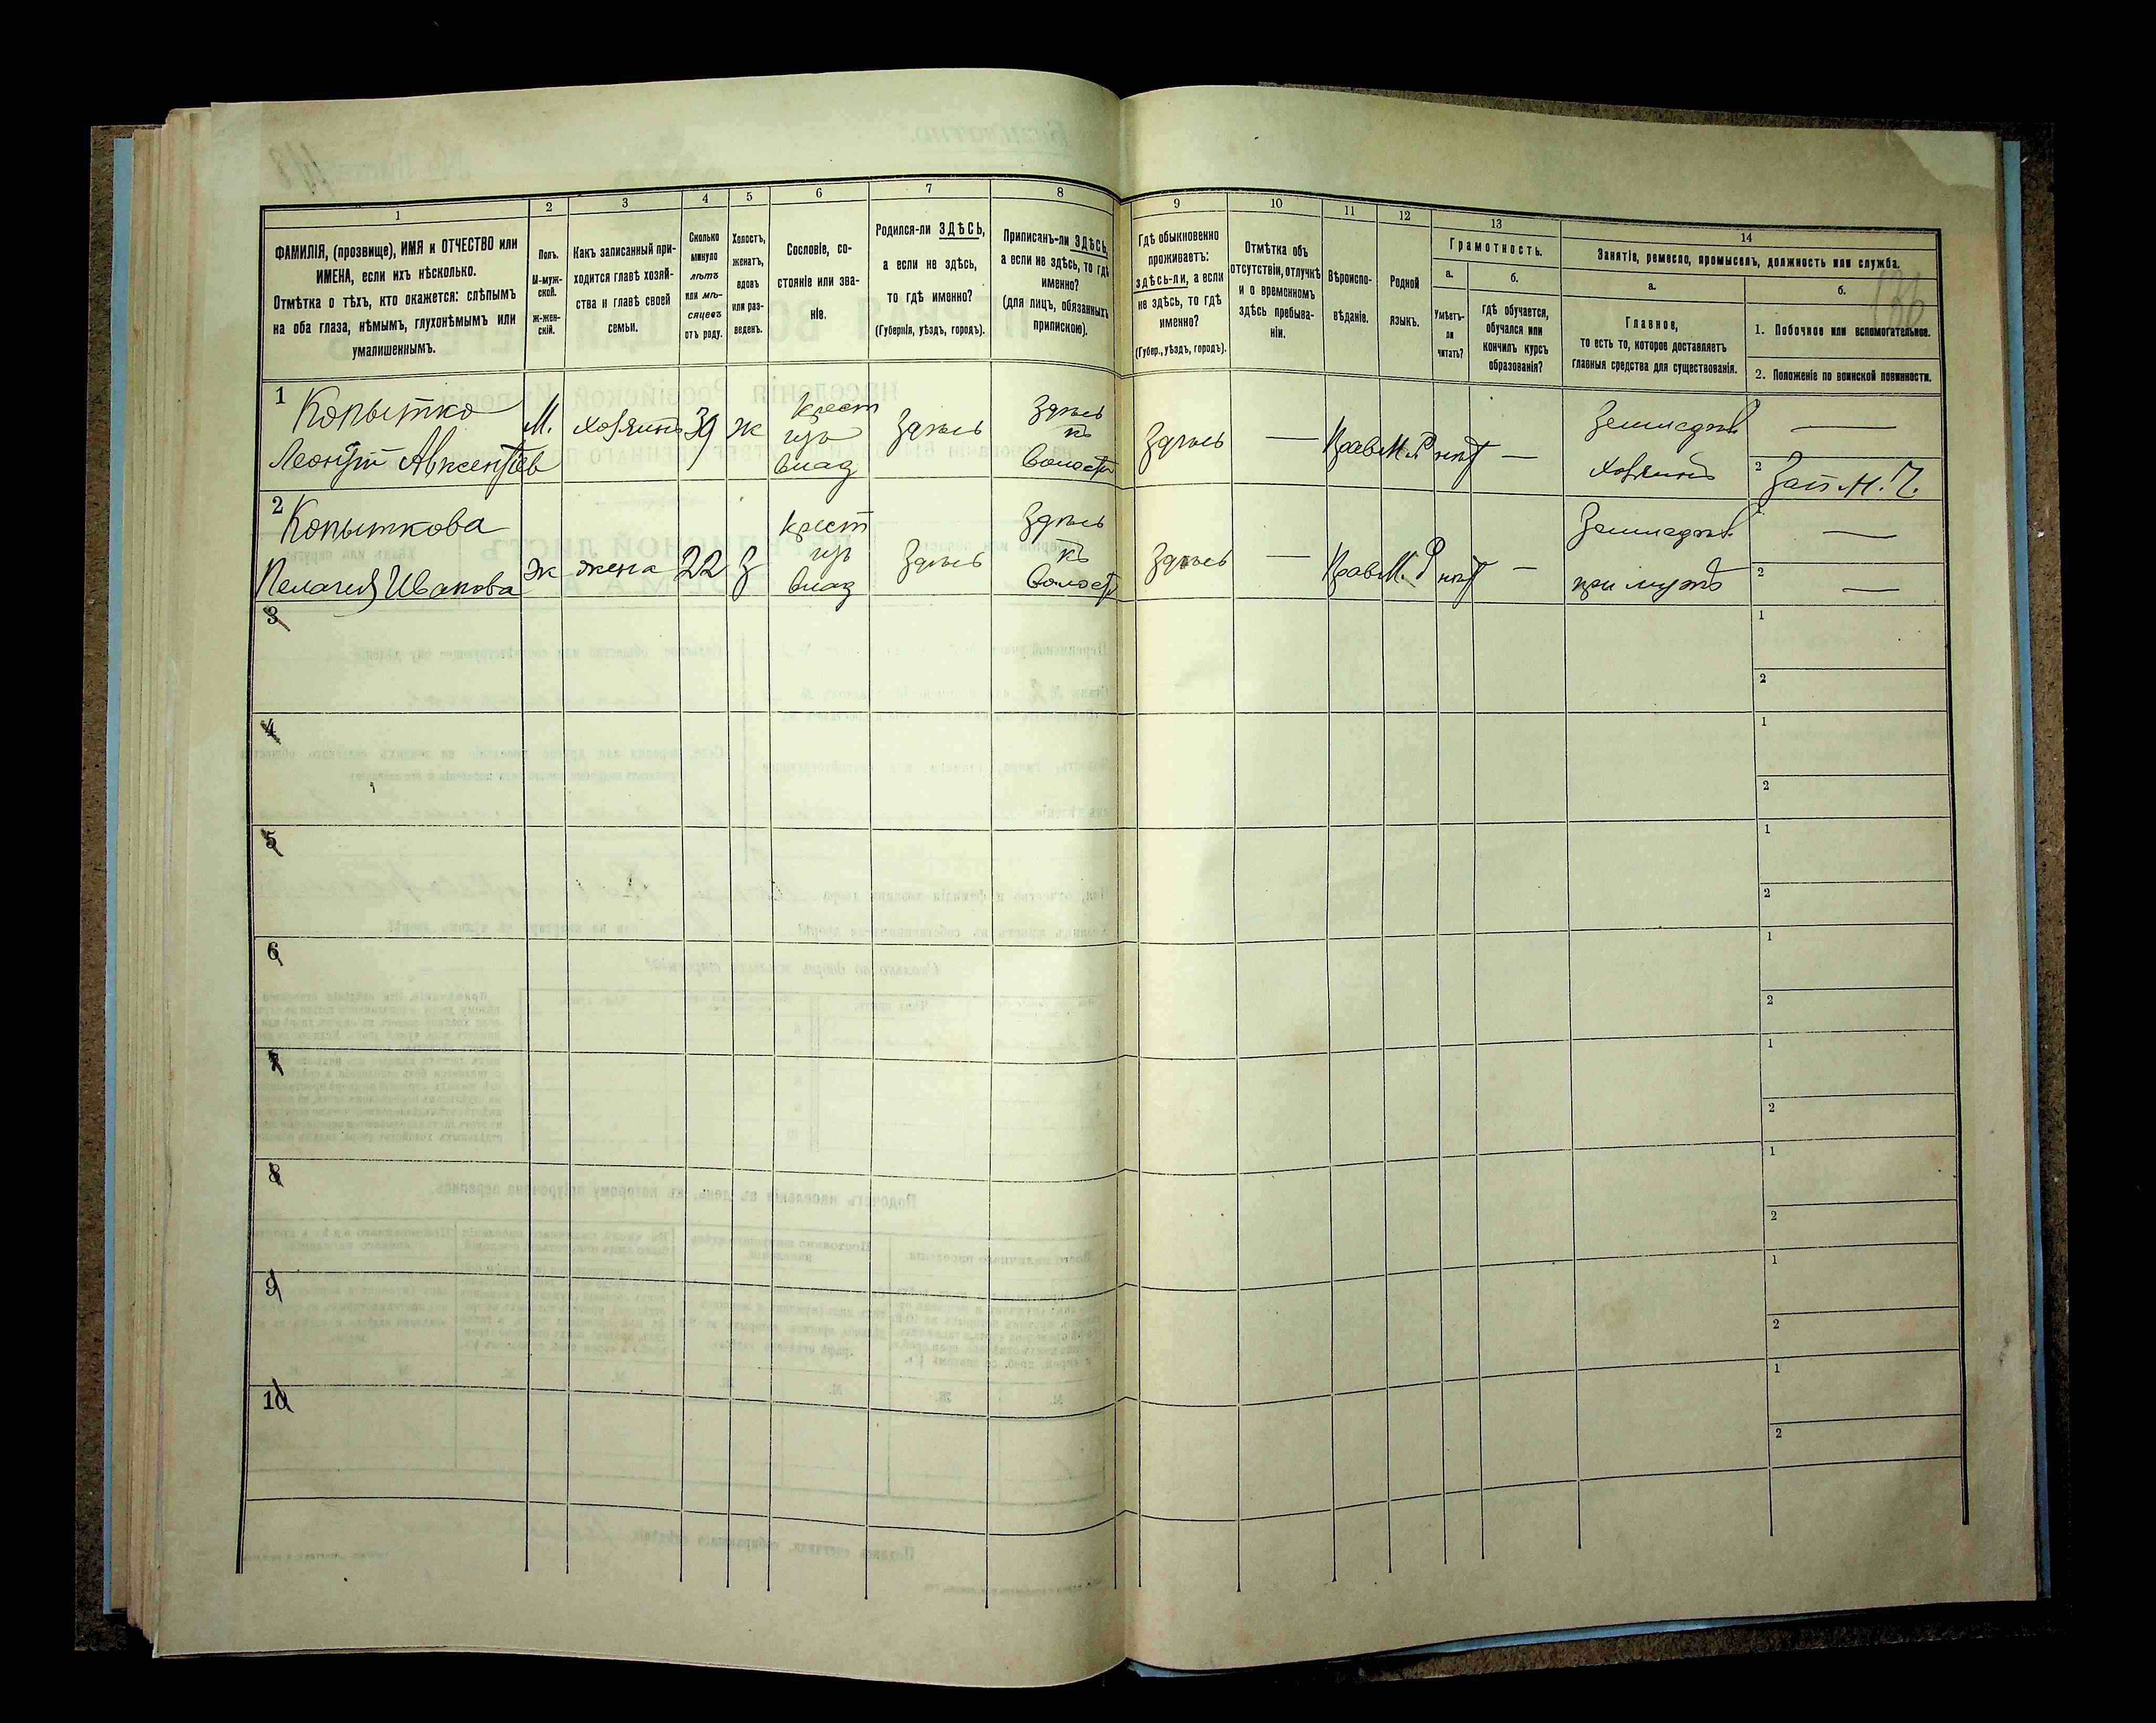 1 2 3 4 5 6 7 8 9 10 11 12 13 14
ФАМИЛІЯ, (прозвище), ИМЯ и ОТЧЕСТВО или
ИМЕНА, если ихъ нѣсколько.
Отмѣтка о тѣхъ, кто окажется: слѣпымъ
на оба глаза, нѣмымъ, глухонѣмымъ или
умалишеннымъ.
Полъ.
М-муж-
ской.
Ж-жен-
скій.
Какъ записанный при-
ходится главѣ хозяй-
ства и главѣ своей
семьи.
Сколько
минуло
лѣтъ
или мѣ-
сяцевъ
отъ роду.
Холостъ,
женатъ,
вдовъ
или раз-
веденъ.
Сословіе, со-
стояніе или зва-
ніе.
Родился-ли ЗДѢСЬ,
а если не здѣсь,
то гдѣ именно?
(Губернія, уѣздъ, городъ).
Приписанъ-ли ЗДѢСЬ,
а если не здѣсь, то гдѣ
именно?
(для лицъ, обязанныхъ
припискою).
Гдѣ обыкновенно
проживаетъ:
здѣсь-ли, а если
не здѣсь, то гдѣ
именно?
(Губер., уѣздъ, городъ).
Отмѣтка объ
отсутствіи, отлучкѣ
и о временномъ
здѣсь пребыва-
ніи.
Вѣроиспо-
вѣданіе.
Родной
языкъ.
Грамотность.
а.
Умѣетъ-
ли
читать?
б.
Гдѣ обучается,
обучался или
кончилъ курсъ
образованія?
Занятіе, ремесло, промыселъ, должность или служба.
а.
Главное,
то есть то, которое доставляетъ
главныя средства для существованія.
б.
1. Побочное или вспомогательное.
2. Положеніе по воинской повинности.
136
1
Копытко
Леонтій Авксентіев
М.
хозяинъ
39
ж
крест
изъ
влад
Здѣсь
Здѣсь
къ
волости
Здѣсь
—
Прав
М.Р
нѣт
—
Земледѣл.
хозяинъ
—
2
Зап.
2
Копыткова
Пелагея Иванова
ж
жена
22
З
крест
изъ
влад
Здѣсь
Здѣсь
къ
волости
Здѣсь
—
Прав
М.Р
нѣт
—
Земледѣл.
при мужѣ
—
2
—
3
1
2
4
1
2
5
1
2
6
1
2
7
1
2
8
1
2
9
1
2
10
1
2